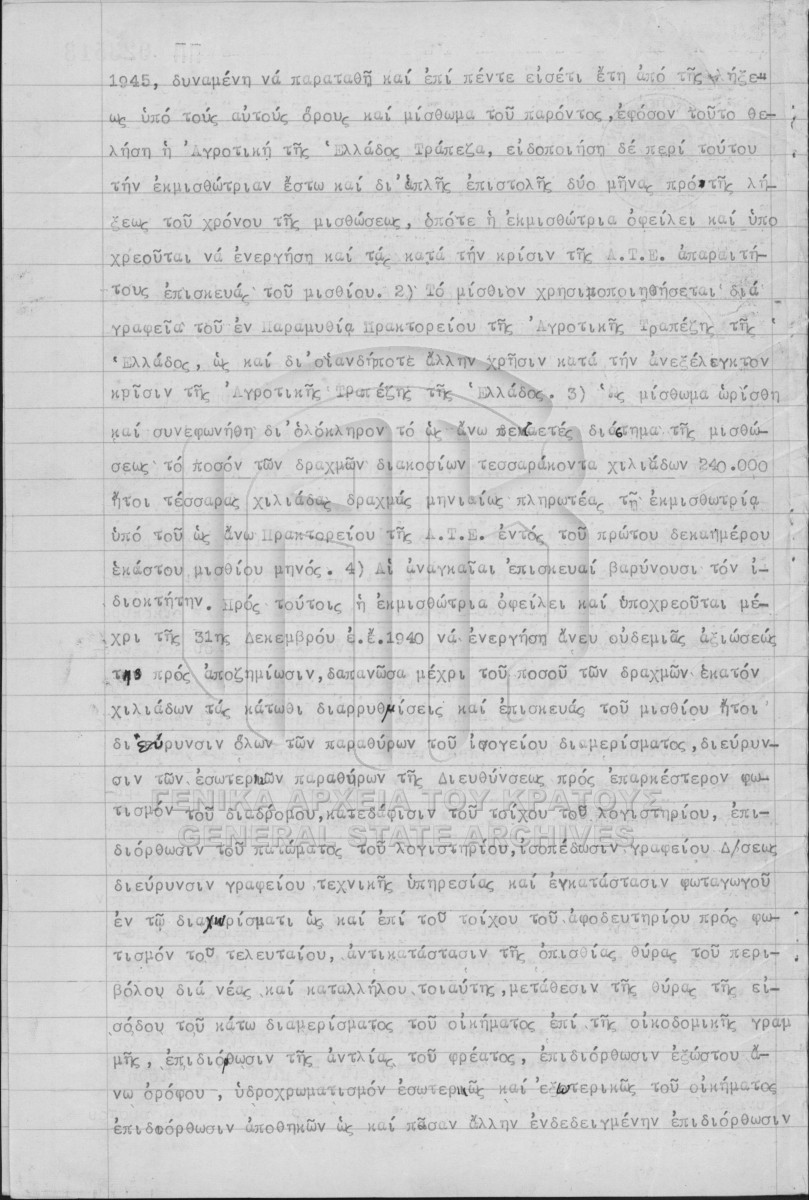 1945, δυναμένη νά παραταθῆ καί ἐπί πέντε εἰσέτι ἔτη ἀπό τῆς λήξε-
ως ὑπό τούς αὐτούς ὅρους καί μίσθωμα τοῦ παρόντος, ἐφόσον τοῦτο θε-
λήση ἡ Ἀγροτική τῆς Ἑλλάδος Τράπεζα, εἰδοποιήση δέ περί τούτου
τήν ἐκμισθώτριαν ἔστω καί δι'ἁπλῆς ἐπιστολῆς δύο μῆνας πρό τῆς λή-
ξεως τοῦ χρόνου τῆς μισθώσεως, ὁπότε ἡ ἐκμισθώτρια ὀφείλει καί ὑπο
χρεοῦται νά ἐνεργήση καί τάς κατά τήν κρίσιν τῆς Α.Τ.Ε. ἀπαραιτή-
τους ἐπισκευάς τοῦ μισθίου. 2) Τό μίσθιον χρησιμοποιηθήσεται διά
γραφεῖα τοῦ ἐν Παραμυθίᾳ Πρακτορείου τῆς Ἀγροτικῆς Τραπέζης τῆς
Ἑλλάδος, ὡς καί δι'οἱανδήποτε ἄλλην χρῆσιν κατά τήν ἀνεξέλεγκτον
κρῖσιν τῆς Ἀγροτικῆς Τραπέζης τῆς Ἑλλάδος. 3) Ὡς μίσθωμα ὡρίσθη
καί συνεφωνήθη δι'ὁλόκληρον τό ὡς ἄνω πενταετές διάστημα τῆς μισθώ-
σεως τό ποσόν τῶν δραχμῶν διακοσίων τεσσαράκοντα χιλιάδων 240.000
ἤτοι τέσσαρας χιλιάδας δραχμάς μηνιαίως πληρωτέας τῇ ἐκμισθωτρίᾳ
ὑπό τοῦ ὡς ἄνω Πρακτορείου τῆς Α.Τ.Ε. ἐντός τοῦ πρώτου δεκαημέρου
ἑκάστου μισθίου μηνός. 4) Αἱ ἀναγκαῖαι ἐπισκευαί βαρύνουσι τόν ἰ-
διοκτήτην. Πρός τούτοις ἡ ἐκμισθώτρια ὀφείλει καί ὑποχρεοῦται μέ-
χρι τῆς 31ης Δεκεμβρύου ἐ.ἔ.1940 νά ἐνεργήση ἄνευ οὐδεμιᾶς ἀξιώσεώς
της πρός ἀποζημίωσιν, δαπανῶσα μέχρι τοῦ ποσοῦ τῶν δραχμῶν ἑκατόν
χιλιάδων τάς κάτωθι διαρρυθμίσεις καί ἐπισκευάς τοῦ μισθίου ἤτοι
διεύρυνσιν ὅλων τῶν παραθύρων τοῦ ἰσογείου διαμερίσματος, διεύρυν-
σιν τῶν ἐσωτερικῶν παραθύρων τῆς Διευθύνσεως πρός ἐπαρκέστερον φω-
τισμόν τοῦ διαδρόμου, κατεδάφισιν τοῦ τοίχου τοῦ λογιστηρίου, ἐπι-
διόρθωσιν τοῦ πατώματος τοῦ λογιστηρίου, ἰσοπέδωσιν γραφείου Δ/σεως
διεύρυνσιν γραφείου τεχνικῆς ὑπηρεσίας καί ἐγκατάστασιν φωταγωγοῦ
ἐν τῷ διαχωρίσματι ὡς καί ἐπί τοῦ τοίχου τοῦ ἀφοδευτηρίου πρός φω-
τισμόν τοῦ τελευταίου, ἀντικατάστασιν τῆς ὀπισθίας θύρας τοῦ περι-
βόλου διά νέας καί καταλλήλου τοιαύτης, μετάθεσιν τῆς θύρας τῆς εἰ-
σόδου τοῦ κάτω διαμερίσματος τοῦ οἰκήματος ἐπί τῆς οἰκοδομικῆς γραμ
μῆς, ἐπιδιόρθωσιν τῆς ἀντλίας τοῦ φρέατος, ἐπιδιόρθωσιν ἐξώστου ἄ-
νω ὀρόφου, ὑδροχρωματισμόν ἐσωτερικῶς καί ἐξωτερικῶς τοῦ οἰκήματος
ἐπιδιόρθωσιν ἀποθηκῶν ὡς καί πᾶσαν ἄλλην ἐνδεδειγμένην ἐπιδιόρθωσιν
ΓΕΝΙΚΑ ΑΡΧΕΙΑ ΤΟΥ ΚΡΑΤΟΥΣ
GENERAL STATE ARCHIVES